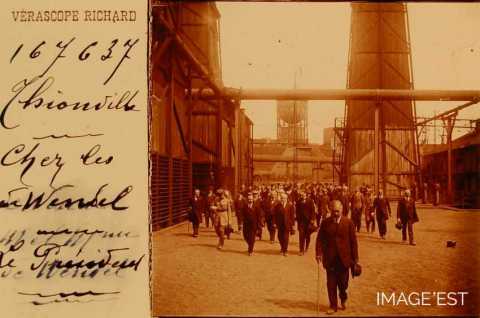 VÉRASCOPE RICHARD
167637
Thionville
Chez les
de Wendel
Le Président
de Wendel
IMAGE'EST